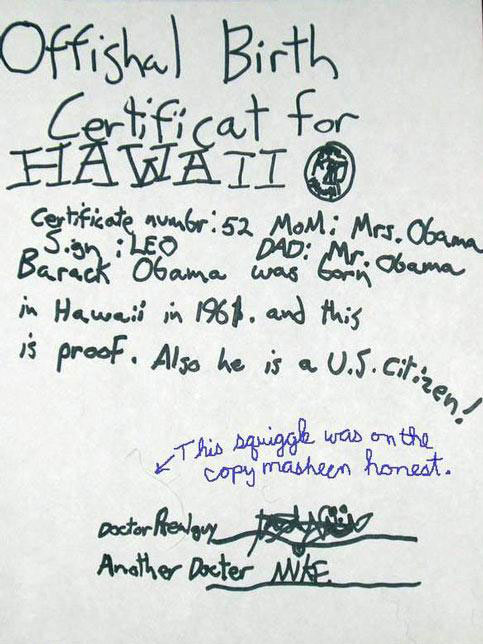 Offishal Birth
Certificat for
HAWAII
Certificate numbr: 52 MOM: Mrs. Obama
Sign: LEO DAD: Mr. Obama
Barack Obama was born
in Hawaii in 1961. and this
is proof. Also he is a U.S. citizen!
This squiggle was on the
copy masheen honest.
Doctor Realguy
Another Docter MIKE